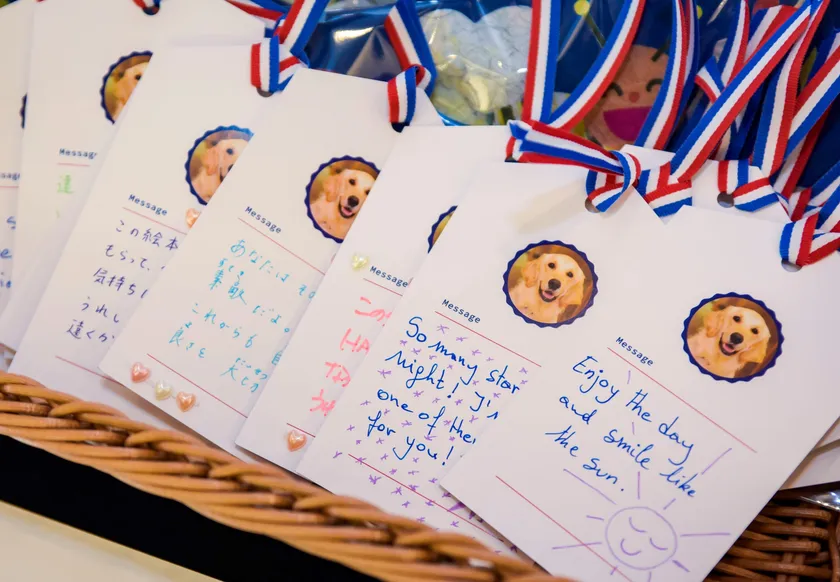 Message
Message
この絵本
もらって、
気持ち
うれし
遠くか
Message
あなたは
素敵だよ
これからも
良さを
Message
この
HA
Message
So many star
Night! I'
one of the
for you!
Message
Enjoy the day
and smile like
the sun.